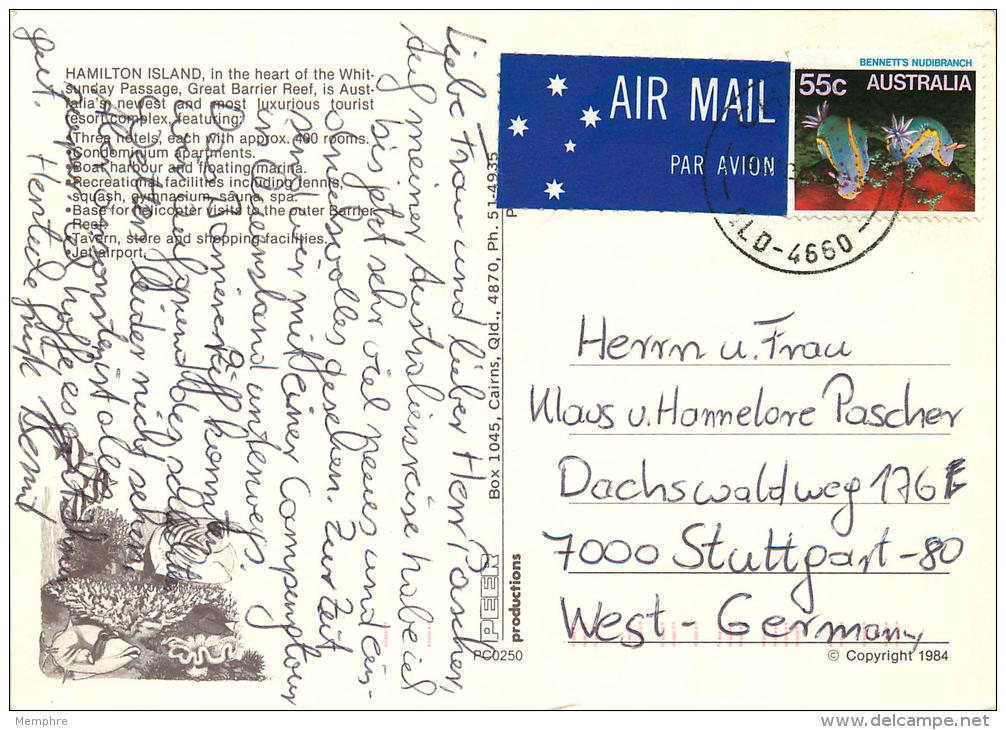 HAMILTON ISLAND, in the heart of the Whit-
sunday Passage, Great Barrier Reef, is Aust-
ralia's newest and most luxurious tourist
resort complex, featuring:
•Three hotels, each with approx. 400 rooms.
•Condominium apartments.
•Boat harbour and floating marina.
•Recreational facilities including tennis,
squash, gymnasium, sauna, spa.
•Base for helicopter visits to the outer Barrier
Reef.
•Tavern, store and shopping facilities.
•Jet airport.
Liebe Frau und lieber Herr Pascher,
Auf meiner Australienreise habe ich
bis jetzt sehr viel neues und ein-
drucksvolles gesehen. Zur Zeit
sind wir mit einer Campingtour
in Queensland unterwegs.
Das Barriere Riff konnten
wir aufgrund des schlechten
Wetters leider nicht sehen
Aber ansonsten ist alles
super. Ich hoffe es geht Ihnen
gut. Herzliche Grüße
Box 1045, Cairns, Qld., 4870, Ph. 51-4935
PEER
productions
PC0250
AIR MAIL
PAR AVION
BENNETT'S NUDIBRANCH
55c AUSTRALIA
QLD-4660
Herrn u. Frau
Klaus u. Hannelore Pascher
Dachswaldweg 176E
7000 Stuttgart-80
West-Germany
© Copyright 1984
Memphre
delcampe.net